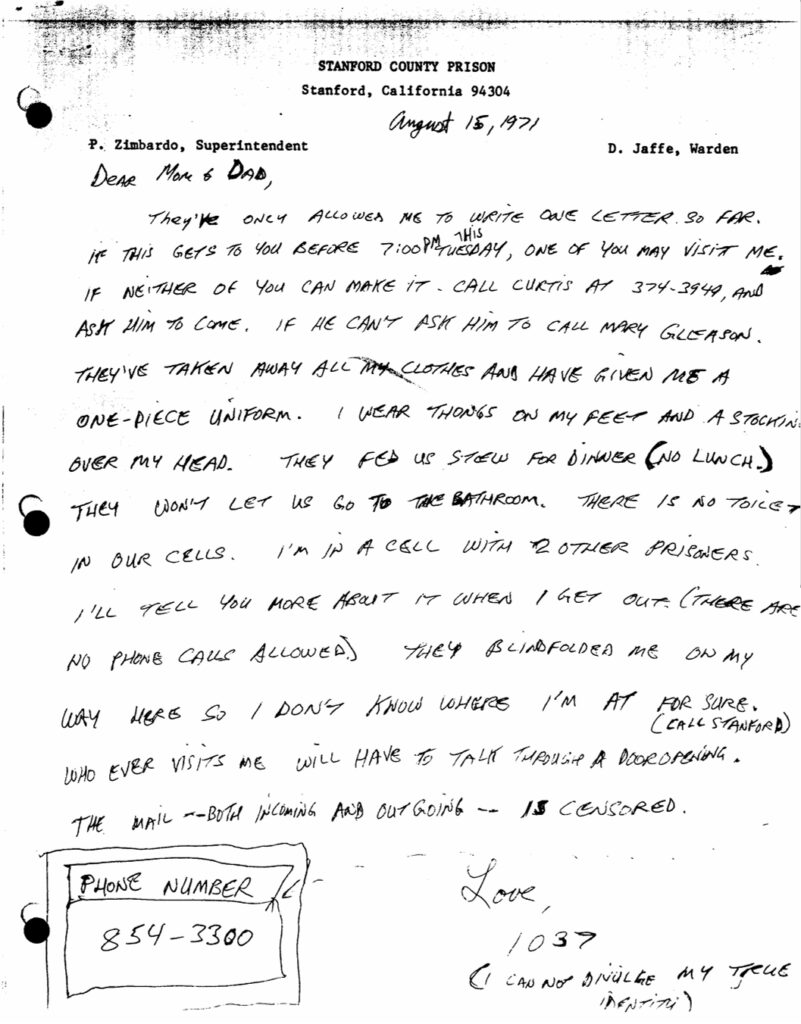 STANFORD COUNTY PRISON
Stanford, California 94304
August 15, 1971
P. Zimbardo, Superintendent
D. Jaffe, Warden
DEAR Mom & DAD,
They've ONLY ALLOWED ME TO WRITE ONE LETTER SO FAR.
IF THIS GETS TO YOU BEFORE 7:00PM THIS TUESDAY, ONE OF YOU MAY VISIT ME.
IF NEITHER OF YOU CAN MAKE IT - CALL CURTIS AT 374-3949, AND
ASK HIM TO COME. IF HE CAN'T ASK HIM TO CALL MARY GLEASON.
THEY'VE TAKEN AWAY ALL MY CLOTHES AND HAVE GIVEN ME A
ONE-PIECE UNIFORM. I WEAR THONGS ON MY FEET AND A STOCKIN
OVER MY HEAD. THEY FED US STEW FOR DINNER (NO LUNCH.)
THEY WON'T LET US GO TO THE BATHROOM. THERE IS NO TOILET
IN OUR CELLS. I'M IN A CELL WITH 2 OTHER PRISONERS.
I'LL TELL YOU MORE ABOUT IT WHEN I GET OUT. (THERE ARE
NO PHONE CALLS ALLOWED.) THEY BLINDFOLDED ME ON MY
WAY HERE SO I DON'T KNOW WHERE I'M AT FOR SURE.
(CALL STANFORD)
WHO EVER VISITS ME WILL HAVE TO TALK THROUGH A DOOR OPENING.
THE MAIL -- BOTH INCOMING AND OUTGOING -- IS CENSORED.
PHONE NUMBER
854-3300
Love,
1037
(I CAN NOT DIVULGE MY TRUE
IDENTITY)